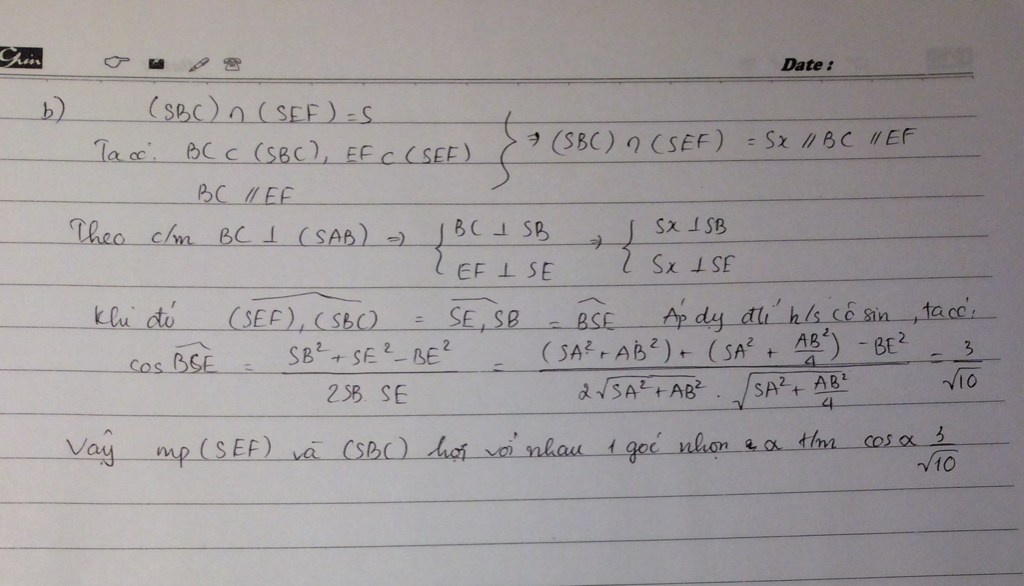 Grin Date :
b) (SBC) ∩ (SEF) = S
Ta có: BC ⊂ (SBC), EF ⊂ (SEF) } ⇒ (SBC) ∩ (SEF) = Sx // BC // EF
BC // EF
Theo c/m BC ⊥ (SAB) ⇒ { BC ⊥ SB ⇒ { Sx ⊥ SB
EF ⊥ SE Sx ⊥ SE
Khi đó (SEF), (SBC) = SE, SB = BSE Áp dụ đlí h/s cô sin, ta có:
cos BSE = (SB² + SE² - BE²) / (2SB. SE) = ((SA² + AB²) + (SA² + AB²/4) - BE²) / (2√(SA² + AB²) . √(SA² + AB²/4)) = 3/√10
Vậy mp (SEF) và (SBC) hợi với nhau 1 góc nhọn α t/m cos α 3/√10